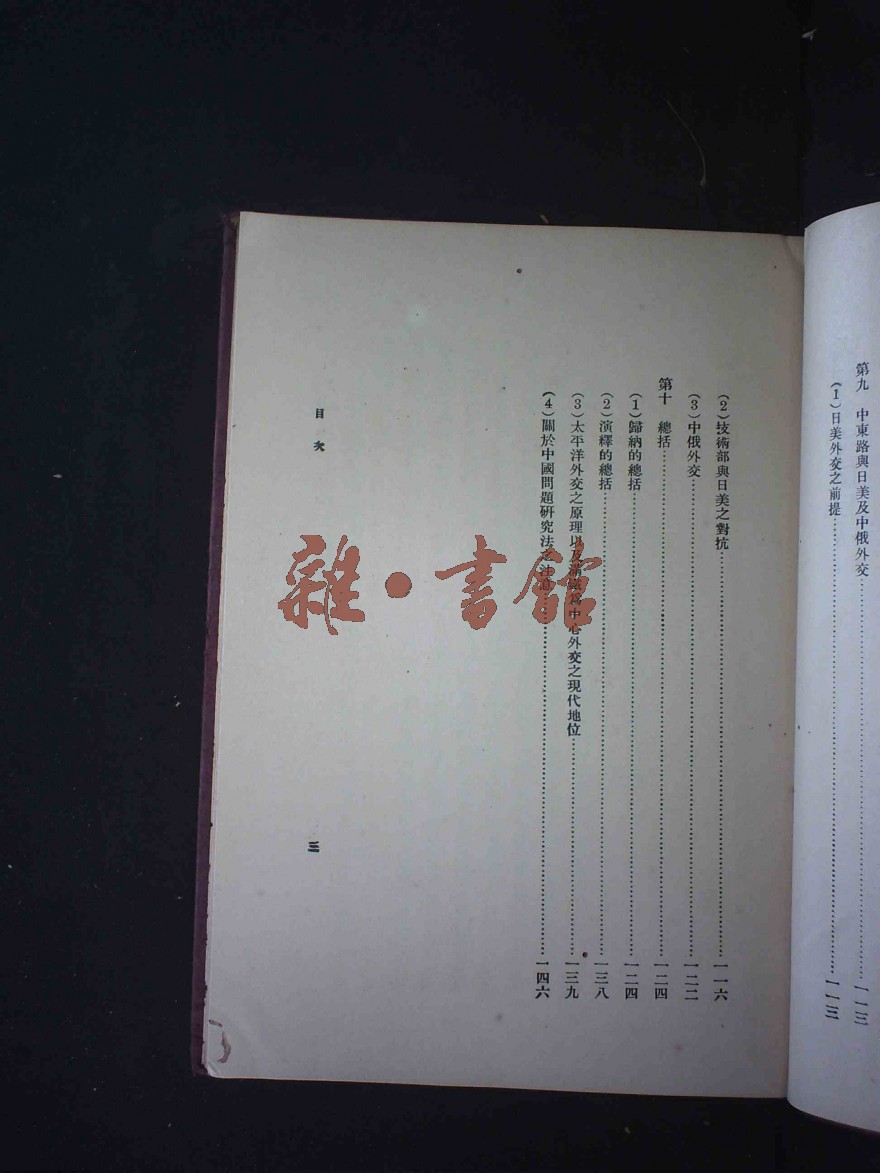 第九　中東路與日美及中俄外交……一一三
(1)日美外交之前提……一一三
(2)技術部與日美之對抗……一一六
(3)中俄外交……一二二
第十　總括……一二四
(1)歸納的總括……一二四
(2)演釋的總括……一三八
(3)太平洋外交之原理以及滿鐵爲中心外交之現代地位……一三九
(4)關於中國問題研究法之……一四六
目次
三
雜·書館